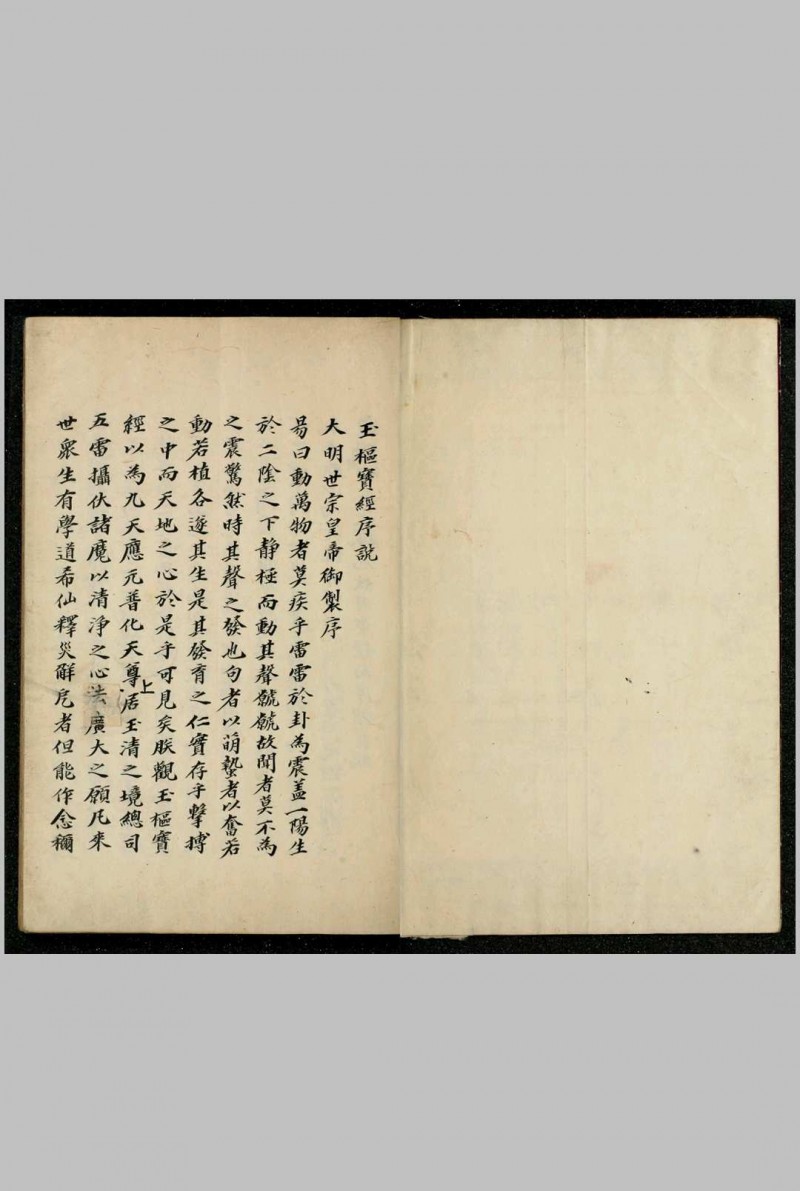 玉樞寳經序説
大明世宗皇帝御製序
易曰動萬物者莫疾乎雷雷於卦為震蓋一陽生
於二陰之下静極而動其聲虩虩故聞者莫不為
之震驚然時其聲之發也句者以萌蟄者以奮若
動若植各遂其生是其發育之仁實存乎擊搏
之中而天地之心於是乎可見矣朕觀玉樞寳
經以為九天應元普化天尊居上玉清之境總司
五雷攝伏諸魔以清淨之心法廣大之願凡來
世衆生有學道希仙釋災解厄者但能作念稱